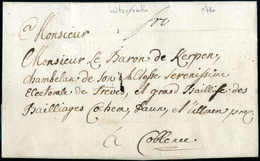 a Monsieur
Monsieur Le Baron de Kerpen,
Chambelan de son Altesse Serenissime
Electorale de Treves, et grand Baillif des
Bailliages Cochem, Daun, et
à Coblence